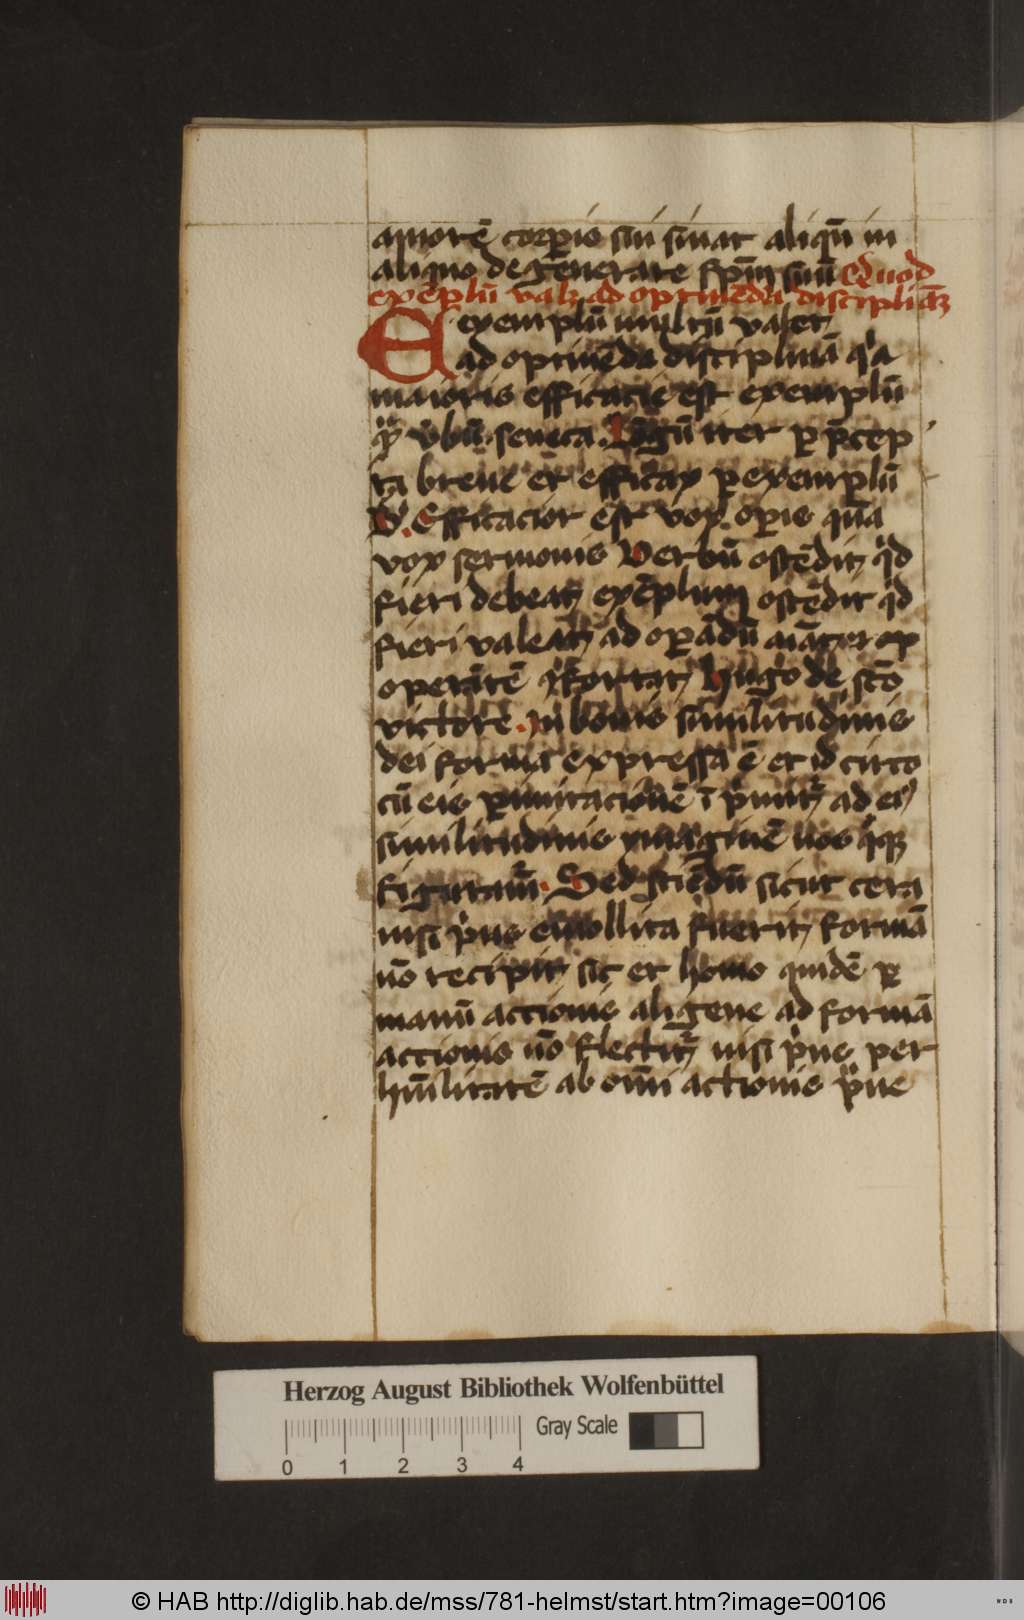 amorē corꝑis sui sinat aliqn̄ in
aliquo degenerare spm̄ suū Quod
exēplū valꝫ ad optinēdū discipliā
Exemplū multū valet
ad optinēdā disciplinā qͥa
maioris efficacie est exemplū
vbū. seneca. Lōgū iter ꝑ p̄cep
ta breue et efficax ꝑ exemplū
B. Efficacior est vox oꝑis quā
vox sermonis Verbū ostēdit qͥd
fieri debeat exēplum ostēdit qͥd
fieri valeat ad oꝑādū
Hugo de scō
victore. In bonis similitudinis
dei forma expressa ē et id circo
cū eis ꝑ imitacionē ad eiꝰ
similitudinis ymaginē nos qͦqꝫ
figuramur. Sed sciēdū sicut cera
nisi pͥus emollita fuerit formā
nō recipit sic et homo quidē ꝑ
manū actionis aligene ad formā
actionis nō flectitur nisi pͥus per
hūilitatē ab omī actionis
Herzog August Bibliothek Wolfenbüttel
Gray Scale
0 1 2 3 4
© HAB http://diglib.hab.de/mss/781-helmst/start.htm?image=00106